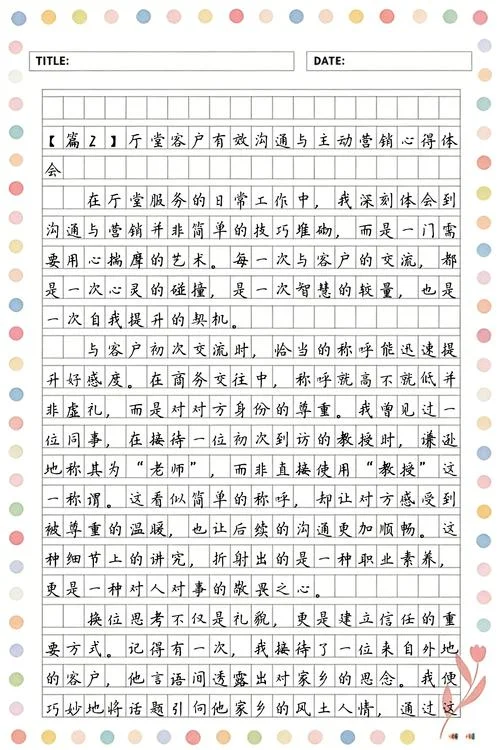 TITLE:
DATE:
【篇2】厅堂客户有效沟通与主动营销心得体
会
在厅堂服务的日常工作中，我深刻体会到
沟通与营销并非简单的技巧堆砌，而是一门需
要用心揣摩的艺术。每一次与客户的交流，都
是一次心灵的碰撞，是一次智慧的较量，也是
一次自我提升的契机。
与客户初次交流时，恰当的称呼能迅速提
升好感度。在商务交往中，称呼就高不就低并
非虚礼，而是对对方身份的尊重。我曾见过一
位同事，在接待一位初次到访的教授时，谦逊
地称其为“老师”，而非直接使用“教授”这
一称谓。这看似简单的称呼，却让对方感受到
被尊重的温暖，也让后续的沟通更加顺畅。这
种细节上的讲究，折射出的是一种职业素养，
更是一种对人对事的敬畏之心。
换位思考不仅是礼貌，更是建立信任的重
要方式。记得有一次，我接待了一位来自外地
的客户，他言语间透露出对家乡的思念。我便
巧妙地将话题引向他家乡的风土人情，通过这